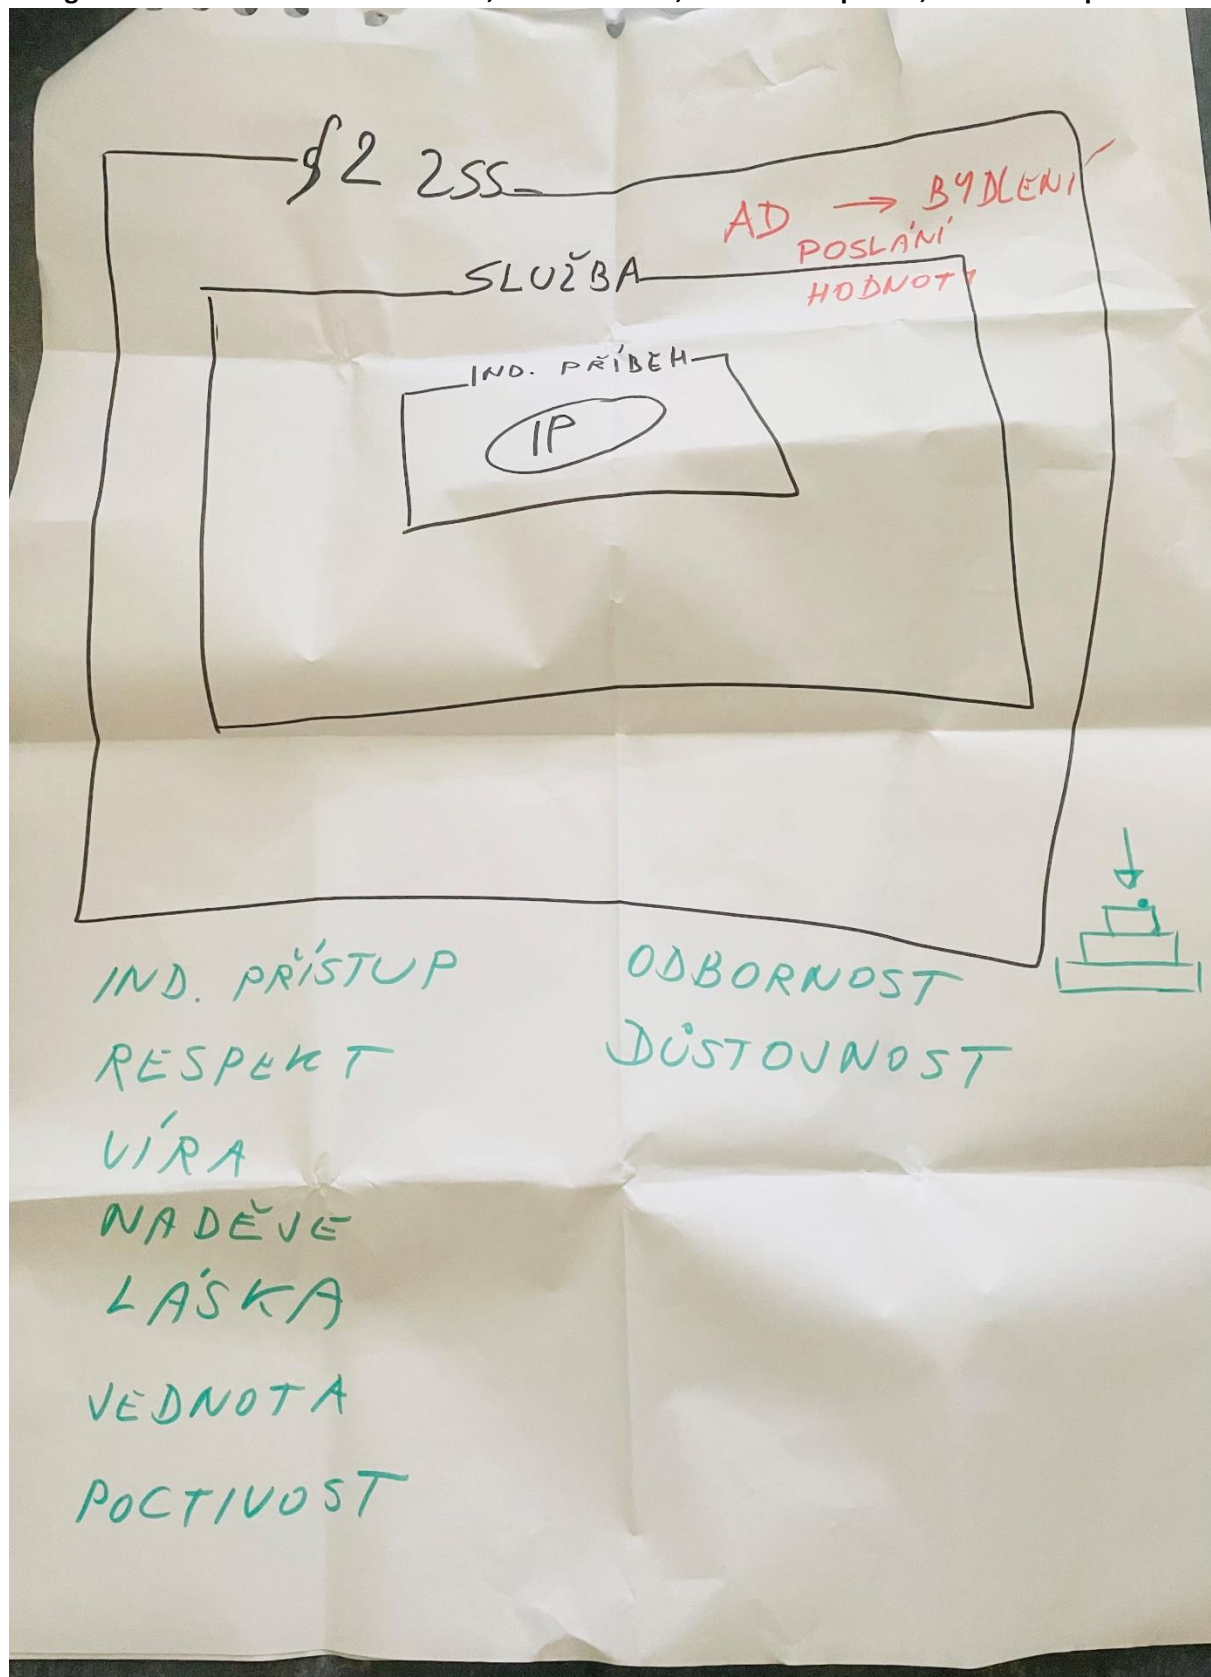 §2 ZSS
AD → BYDLENÍ
POSLÁNÍ
HODNOTY
SLUŽBA
IND. PŘÍBĚH
IP
IND. PŘÍSTUP
RESPEKT
VÍRA
NADĚJE
LÁSKA
JEDNOTA
POCTIVOST
ODBORNOST
DŮSTOJNOST